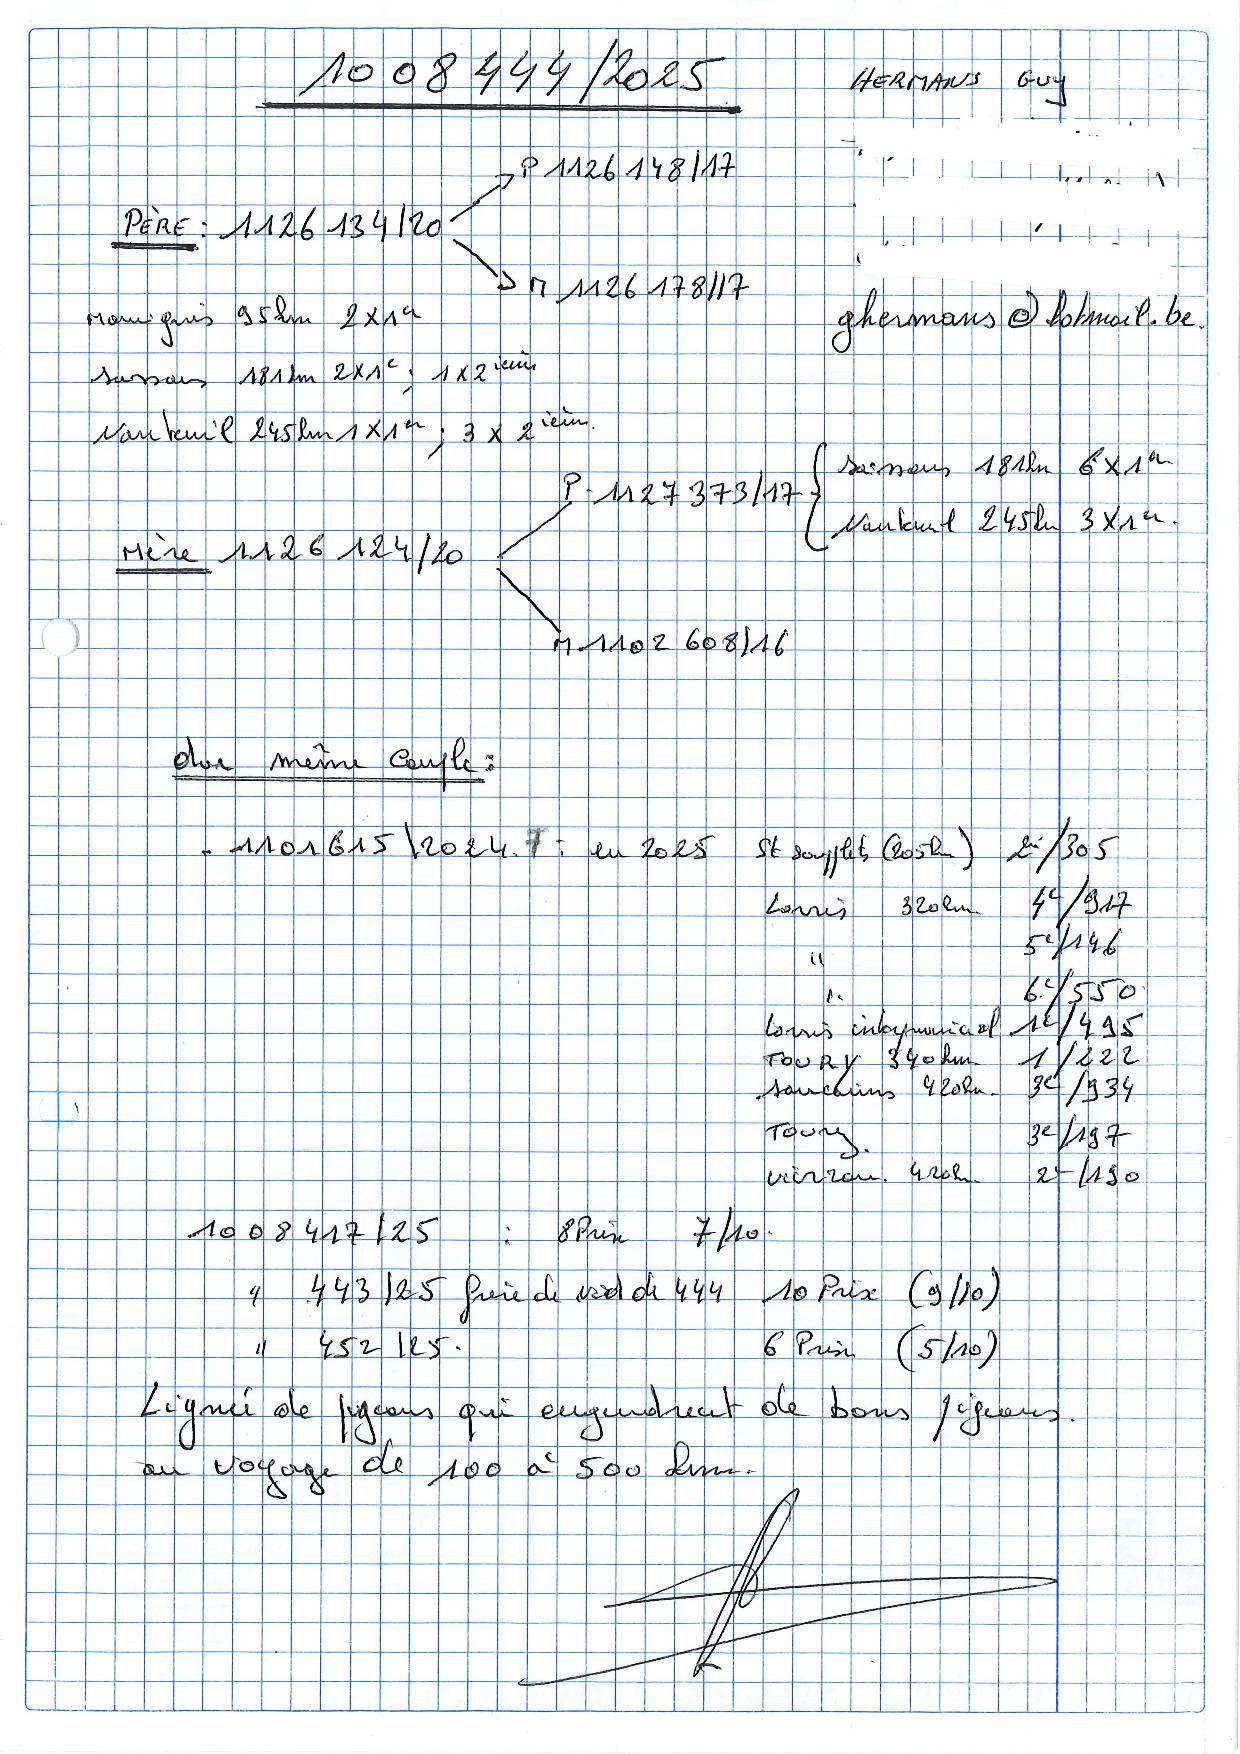 1008444/2025
HERMANS Guy
P 1126148/17
PÈRE : 1126134/20
M 1126178/17
Momignies 95km 2x1er
ghermans@hotmail.be.
Soissons 181km 2x1er ; 1x2ième
Nanteuil 245km 1x1er ; 3 x 2ièm.
Soissons 181km 6x1er
P. 1127373/17
Nanteuil 245km 3x1er.
Mère 1126124/20
M 1102608/16
du même couple :
- 1101615/2024. : en 2025 St soupplets (205km) 2e/305
Lorris 320km. 4e/917
" 5e/146
" 6e/550
Lorris interprovincial 1e/495
TOURY 340km. 1/222
420km. 3e/934
Toury. 3e/197
vierzon. 420km 2e/190
1008417/25 : 8 Prix 7/10.
" 443/25 frère de nid de 444 10 Prix (9/10)
" 452/25. 6 Prix (5/10)
Lignée de pigeons qui engendrent de bons pigeons.
au voyage de 100 à 500 km.